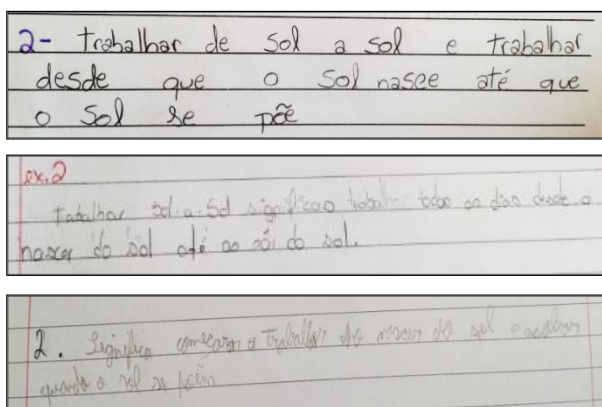 2- trabalhar de sol a sol e trabalhar
desde que o sol nasce até que
o sol se põe
ex.2
Tabalhar sol-a-sol significao trabalh todos os dias desde o
nascer do sol até ao pôi do sol.
2. Significa começarem a trabalhar do nascer do sol e acabar
quando o sol se